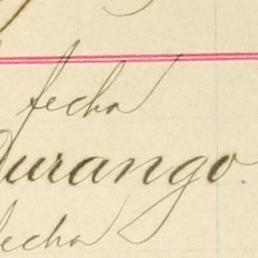 fecha
Durango.
fecha